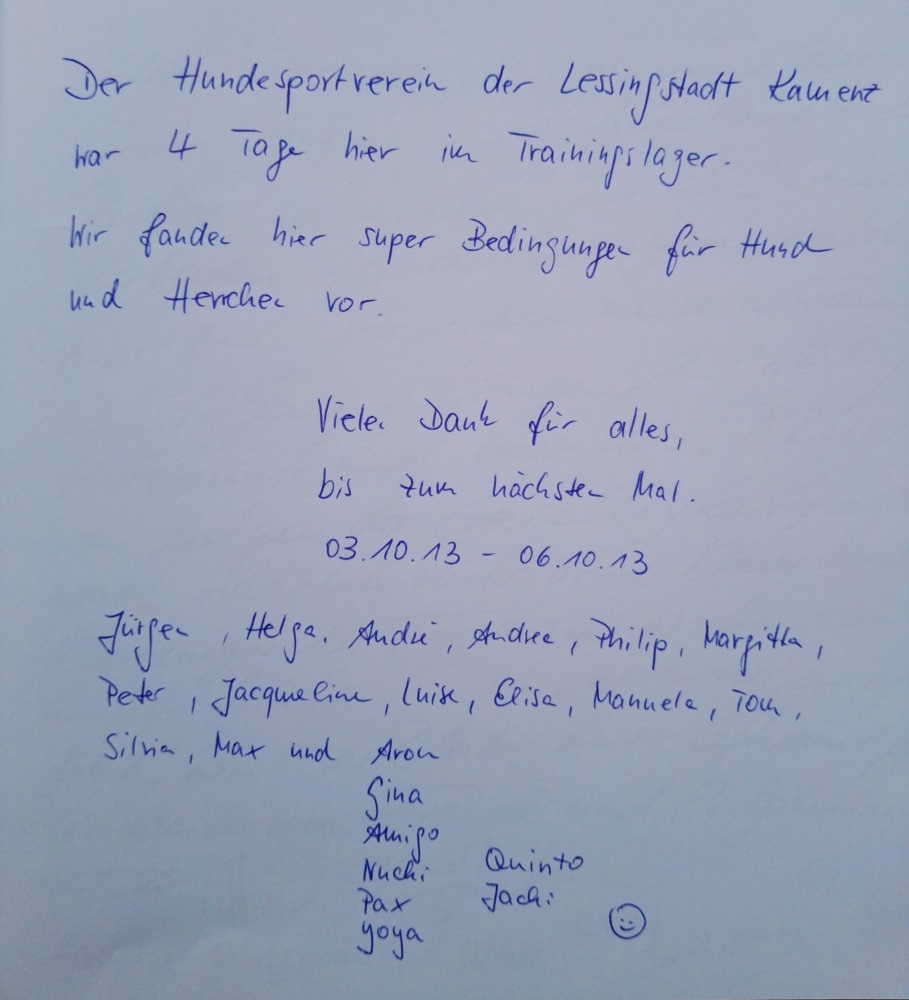 Der Hundesportverein der Lessingstadt Kamenz
war 4 Tage hier im Trainingslager.
Wir fanden hier super Bedingungen für Hund
und Herrchen vor.
Vielen Dank für alles,
bis zum nächsten Mal.
03.10.13 - 06.10.13
Jürgen, Helga. André, Andrea, Philip, Margitta,
Peter, Jacqueline, Luise, Elisa, Manuela, Tom,
Silvia, Max und Aron
Gina
Amigo
Nuchi Quinto
Pax Jachi
yoya